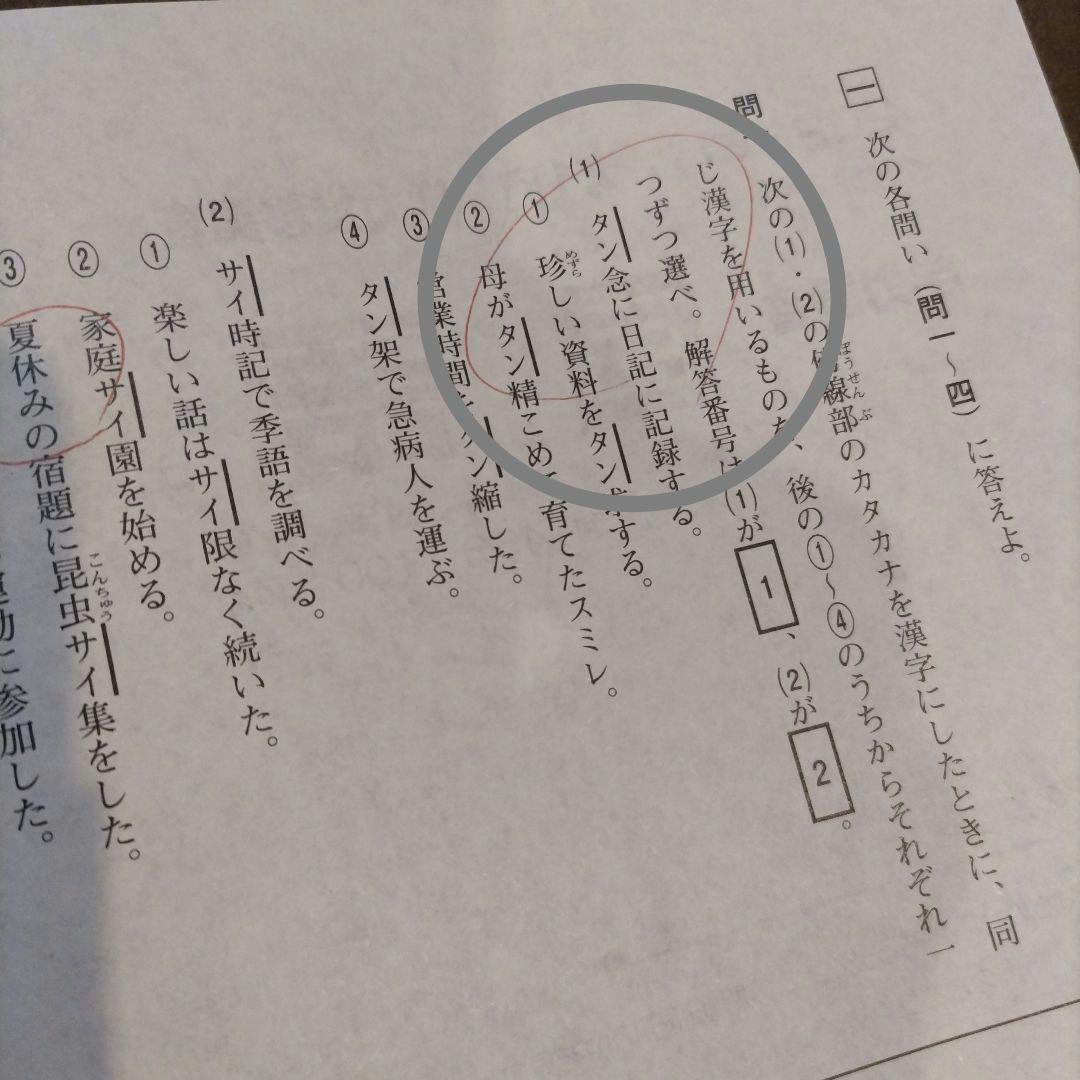 一 次の各問い(問一〜四)に答えよ。
問一 次の(1)・(2)の傍線部のカタカナを漢字にしたときに、同
じ漢字を用いるものを、後の①〜④のうちからそれぞれ一
つずつ選べ。解答番号は(1)が1、(2)が2。
(1) タン念に日記に記録する。
① 珍しい資料をタン求する。
② 母がタン精こめて育てたスミレ。
③ 営業時間をタン縮した。
④ タン架で急病人を運ぶ。
(2) サイ時記で季語を調べる。
① 楽しい話はサイ限なく続いた。
② 家庭サイ園を始める。
③ 夏休みの宿題に昆虫サイ集をした。
運動に参加した。